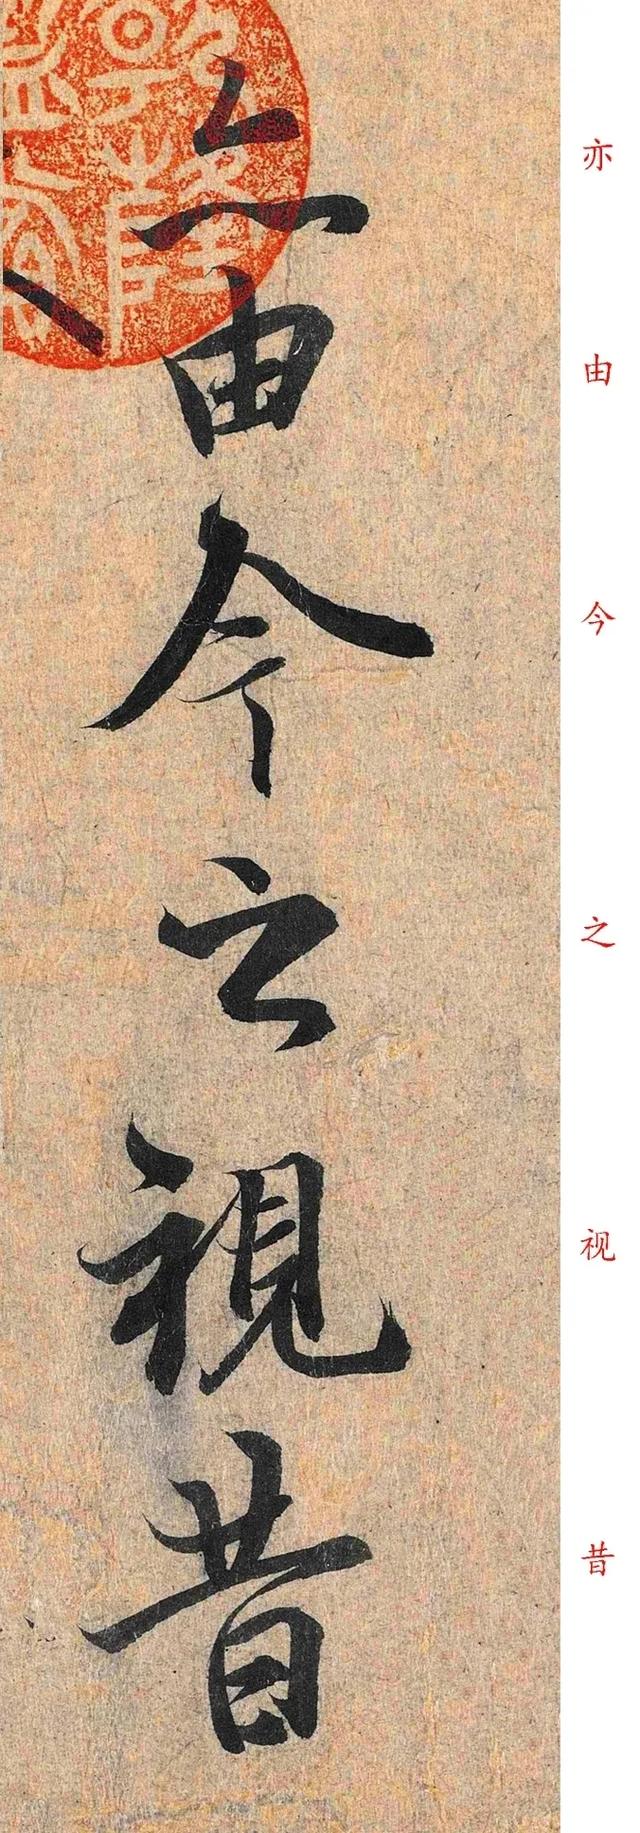 亦由今之視昔
亦由今之视昔